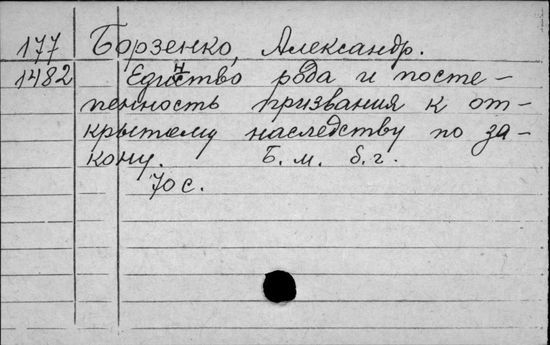 177 Борзенко, Александр.
1482 Единство рода и посте-
пенность призвания к от-
крытому наследству по за-
кону. Б. м. б. г.
70 с.